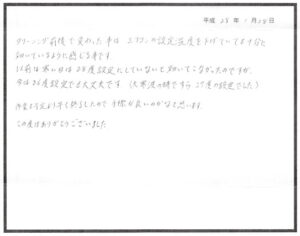 平成 28年 1月28日
クリーニング前後で変わった事は エアコンの設定温度を下げていても十分に
効いているように感じる事です
以前は寒い日は28度設定にしていないと効いてこなかったのですが、
今は25度設定でも大丈夫です (大寒波の時ですら 27度の設定でした)
作業も予定より早く終了したので 手際が良いのかなと思います
この度はありがとうございました